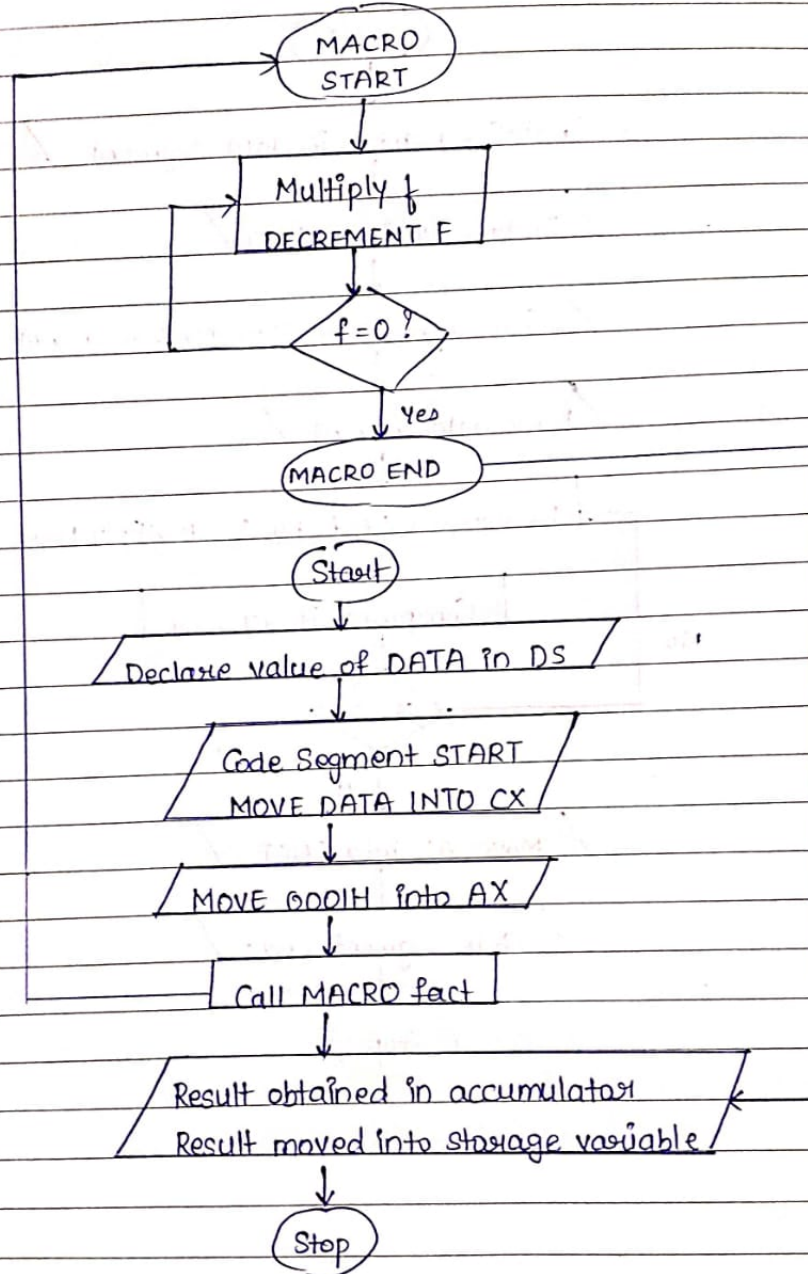 MACRO
START
Multiply f
DECREMENT F
f=0?
Yes
MACRO END
Start
Declare value of DATA in DS
Code Segment START
MOVE DATA INTO CX
MOVE 0001H into AX
Call MACRO fact
Result obtained in accumulator
Result moved into storage variable
Stop